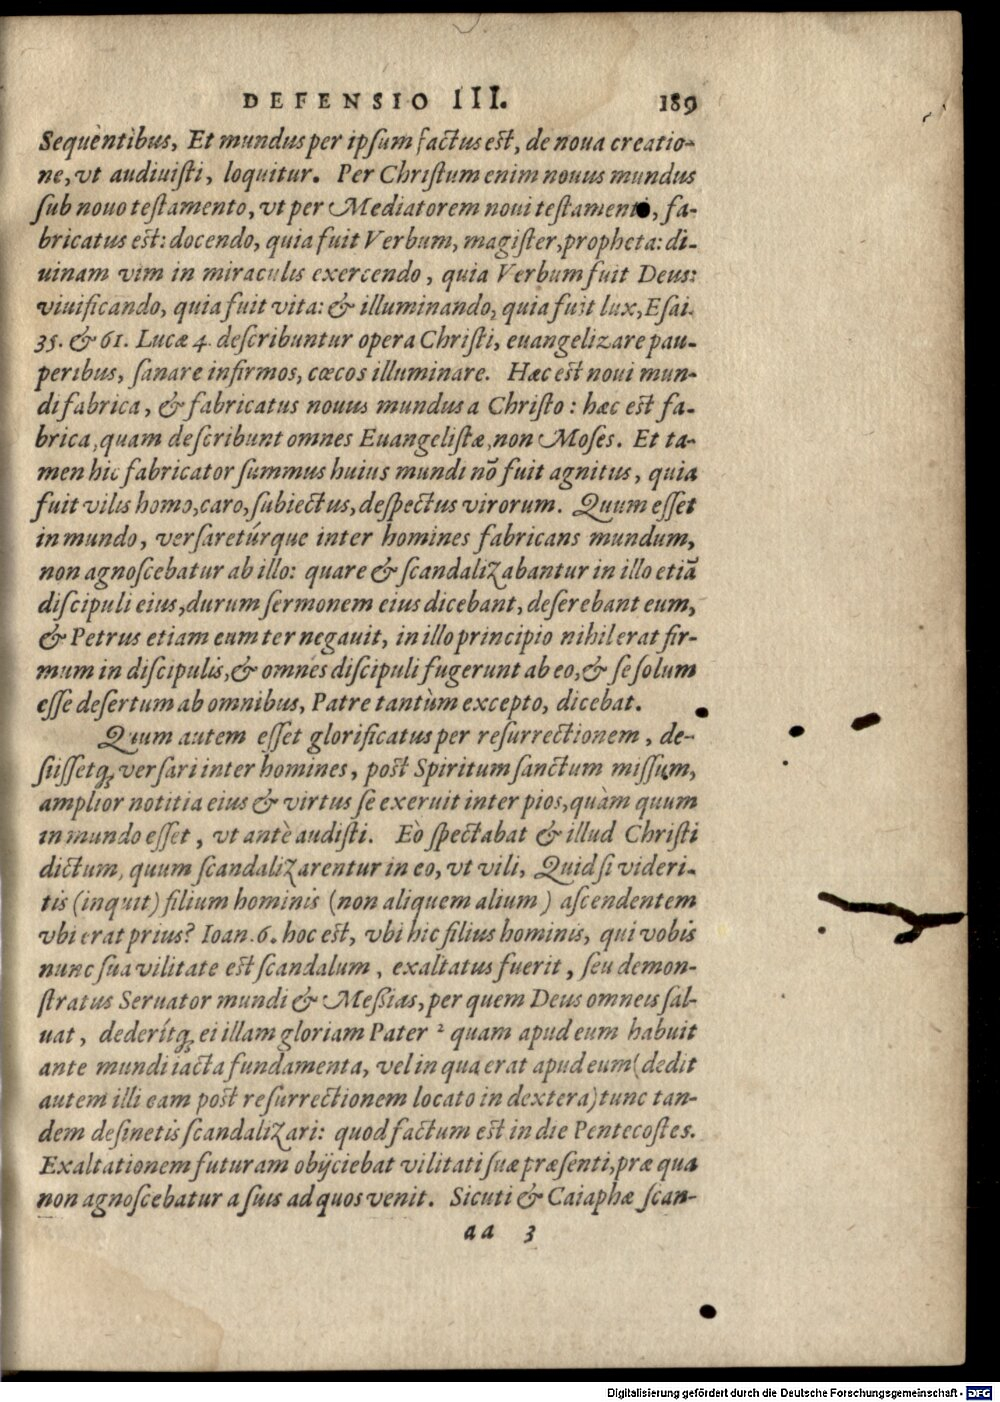 DEFENSIO III. 189
Sequẽntibus, Et mundus per ipſum factus est, de noua creatio-
ne, vt audiuiſti, loquitur. Per Chriſtum enim nouus mundus
ſub nouo teſtamento, vt per Mediatorem noui teſtamenti, fa-
bricatus est: docendo, quia fuit Verbum, magiſter, propheta: di-
uinam vim in miraculis exercendo, quia Verbum fuit Deus:
viuificando, quia fuit vita: & illuminando, quia fuit lux, Eſai.
35. & 61. Lucæ 4. deſcribuntur opera Chriſti, euangelizare pau-
peribus, ſanare infirmos, cœcos illuminare. Hæc est noui mun-
di fabrica, & fabricatus nouus mundus a Chriſto: hæc est fa-
brica, quam deſcribunt omnes Euangeliſtæ, non Moſes. Et ta-
men hic fabricator ſummus huius mundi nõ fuit agnitus, quia
fuit vilis homo, caro, ſubiectus, deſpectus virorum. Quum eſſet
in mundo, verſaretúrque inter homines fabricans mundum,
non agnoſcebatur ab illo: quare & ſcandalizabantur in illo etiã
diſcipuli eius, durum ſermonem eius dicebant, deſerebant eum,
& Petrus etiam eum ter negauit, in illo principio nihil erat fir-
mum in diſcipulis, & omnes diſcipuli fugerunt ab eo, & ſe ſolum
eſſe deſertum ab omnibus, Patre tantùm excepto, dicebat.
Quum autem eſſet glorificatus per reſurrectionem, de-
ſiiſſetq́; verſari inter homines, poſt Spiritum ſanctum miſſum,
amplior notitia eius & virtus ſe exeruit inter pios, quàm quum
in mundo eſſet, vt antè audiſti. Eò ſpectabat & illud Chriſti
dictum, quum ſcandalizarentur in eo, vt vili, Quid ſi videri-
tis (inquit) filium hominis (non aliquem alium) aſcendentem
vbi erat prius? Ioan. 6. hoc est, vbi hic filius hominis, qui vobis
nunc ſua vilitate est ſcandalum, exaltatus fuerit, ſeu demon-
ſtratus Seruator mundi & Meßias, per quem Deus omneis ſal-
uat, dederítq́; ei illam gloriam Pater ² quam apud eum habuit
ante mundi iacta fundamenta, vel in qua erat apud eum (dedit
autem illi eam poſt reſurrectionem locato in dextera) tunc tan-
dem deſinetis ſcandalizari: quod factum est in die Pentecoſtes.
Exaltationem futuram obijciebat vilitati ſuæ præſenti, præ qua
non agnoſcebatur a ſuis ad quos venit. Sicuti & Caiaphæ ſcan-
aa 3
Digitalisierung gefördert durch die Deutsche Forschungsgemeinschaft - DFG